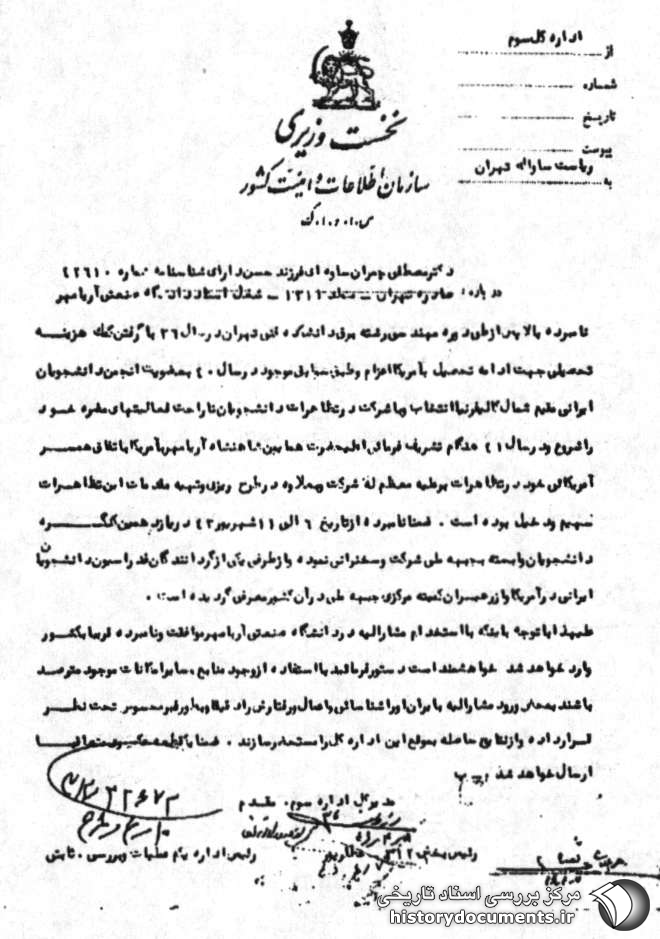 اداره کل سوم
از
شماره
تاریخ
پیوست
ریاست ساواک تهران
به
نخست وزیری
سازمان اطلاعات و امنیت کشور
س.ا.و.ا.ک
دکتر مصطفی چمران ساوه ای فرزند حسن دارای شناسنامه شماره
درباره: صادره تهران – متولد ۱۳۱۲ – شغل استاد دانشگاه صنعتی آریامهر
نامبرده بالا پس از طی دوره مهندسی رشته برق دانشکده فنی تهران در سال ۳۶ با گرفتن کمک هزینه
تحصیلی جهت ادامه تحصیل بآمریکا اعزام و طبق سوابق موجود در سال ۴۰ بعضویت انجمن دانشجویان
ایرانی مقیم شمال کالیفرنیا انتخاب و با شرکت در تظاهرات دانشجویان ناراحت فعالیتهای مضره خود
را شروع و در سال ۴۱ هنگام تشریف فرمائی اعلیحضرت همایون شاهنشاه آریامهر بآمریکا باتفاق همسر
آمریکائی خود در تظاهرات برعلیه معظم له شرکت و بعلاوه در طرح ریزی و تهیه مقدمات این تظاهرات
سهیم و دخیل بوده است . ضمنا نامبرده از تاریخ ۶ الی ۱۱ شهریور ۴۳ در یازدهمین کنگره
دانشجویان وابسته بجبهه ملی شرکت و سخنرانی نموده و از طرفی یکی از گردانندگان فدراسیون دانشجویان
ایرانی در آمریکا و از رهبران کمیته مرکزی جبهه ملی در آن کشور معرفی گردیده است .
علیهذا با توجه باینکه با استخدام مشارالیه در دانشگاه صنعتی آریامهر موافقت و نامبرده قریبا بکشور
وارد خواهد شد خواهشمند است دستور فرمائید با استفاده از وجود منابع سایر امکانات موجود مترصد
باشند بمحض ورود مشارالیه بایران او را شناسائی و اعمال و رفتارش را دقیقا و بطور غیرمحسوس تحت نظر
قرار داده و از نتایج حاصله بموقع این اداره کل را مستحضر سازند . ضمنا یکقطعه عکس متعاقبا
ارسال خواهد شد
مدیرکل اداره سوم . مقدم
رئیس بخش ۳۱۲ عطارپور
رئیس اداره یکم عملیات و بررسی . ثابتی
مرکز بررسی اسناد تاریخی
historydocuments.ir